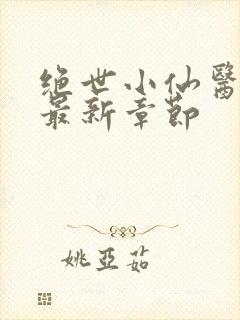 绝世小仙醫
最新章節
姚亞茹